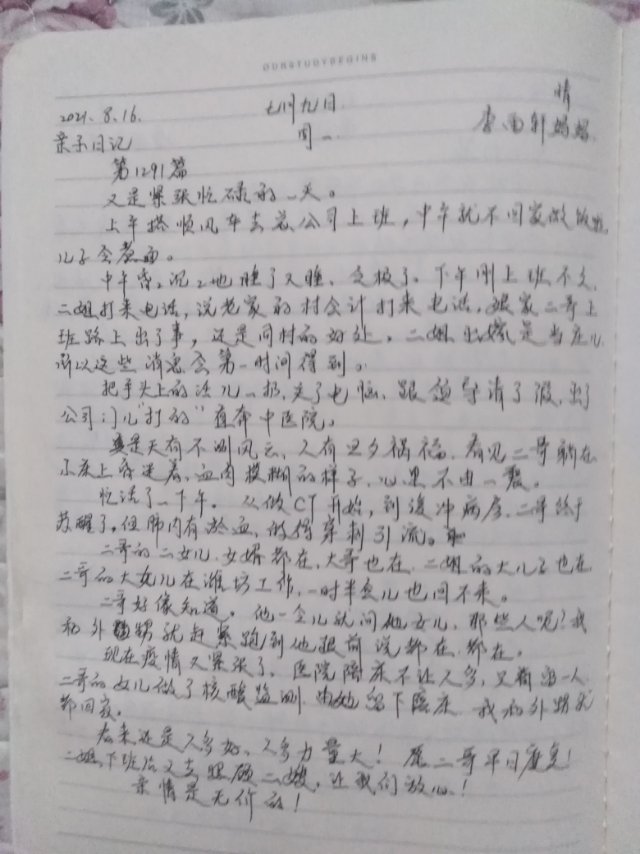 OURSTUDYBEGINS
2021.8.16. 七月九日 晴
亲子日记 周一 李雨轩妈妈
第1291篇
又是紧张忙碌的一天。
上午搭顺风车去总公司上班，中午就不回家做饭啦，
儿子会煮面。
中午昏沉地睡了又睡，下午刚上班不久，
二姐打来电话，说老家的村会计打来电话，娘家二哥上
班路上出了事，还是同村的好处，二姐
所以这些消息会第一时间得到。
把手头上的活儿一扔，关了电脑，跟领导请了假，出了
公司门儿"打的"直奔中医院。
真是天有不测风云，人有旦夕祸福，看见二哥躺在
小床上昏迷着，血肉模糊的样子，心里不由一紧。
忙活了一下午。从做CT开始，到缓冲病房，二哥终于
苏醒了，但肺内有淤血，的得穿刺引流。
二哥的二女儿、女婿都在，大哥也在，二姐的大儿子也在
二哥的大女儿在潍坊工作，一时半会儿也回不来。
二哥好像知道。他一会儿就问他女儿，那些人呢？我
和外甥就赶紧跑到他跟前说都在，都在。
现在疫情又紧张了，医院陪床不让人多，只能留一人
二哥的女儿做了核酸监测，由她留下陪床，我和外甥
都回家。
看来还是人多好，人多力量大！愿二哥早日康复！
二姐下班后又去照顾二嫂，让我们放心！
亲情是无价的！